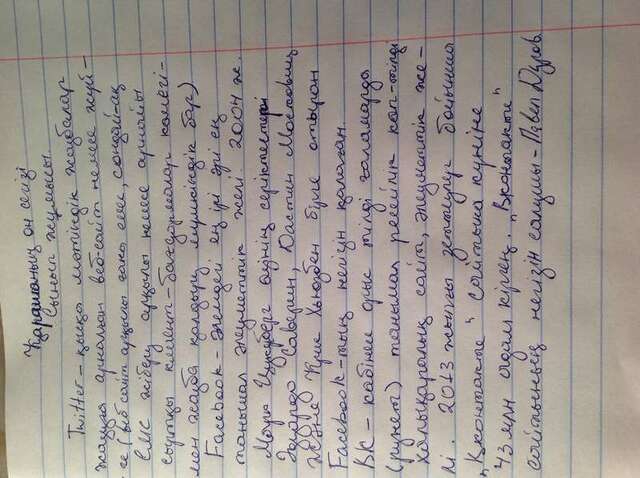 Қарашаның он сегізі
Сынып жұмысы.
Twitter – қысқа мәтіндік жазбалар
жазуға арналған веб-сайт немесе жүй-
е (веб сайт арқылы ғана емес, сондай-ақ
СМС жіберу арқылы немесе арнайы
сыртқы клиент-бағдармалар көмегі-
мен жазба қалдыру мүмкіндік бар)
Facebook – әлемдегі ең ірі әрі ең
танымал әлуметтік желі. 2004 ж.
Марк Цукерберг өзінің серіктестері
Эдуардо Саверин, Дастин Московиц
және Крис Хьюзбен бірге отырып
Facebook-тың негізін қалаған.
ВК – көбінее орыс тілді ғаламарда
(рунет) танымал ресейлік көп-тілді
Халықаралық сайт, әлуметтік же-
лі. 2013 жылғы зерттеулер бойынша
"Вконтакте" сайтына күніне
"43 млн адам кірген. "Вконтакте"
сайтының негізін салушы - Павел Дуров.